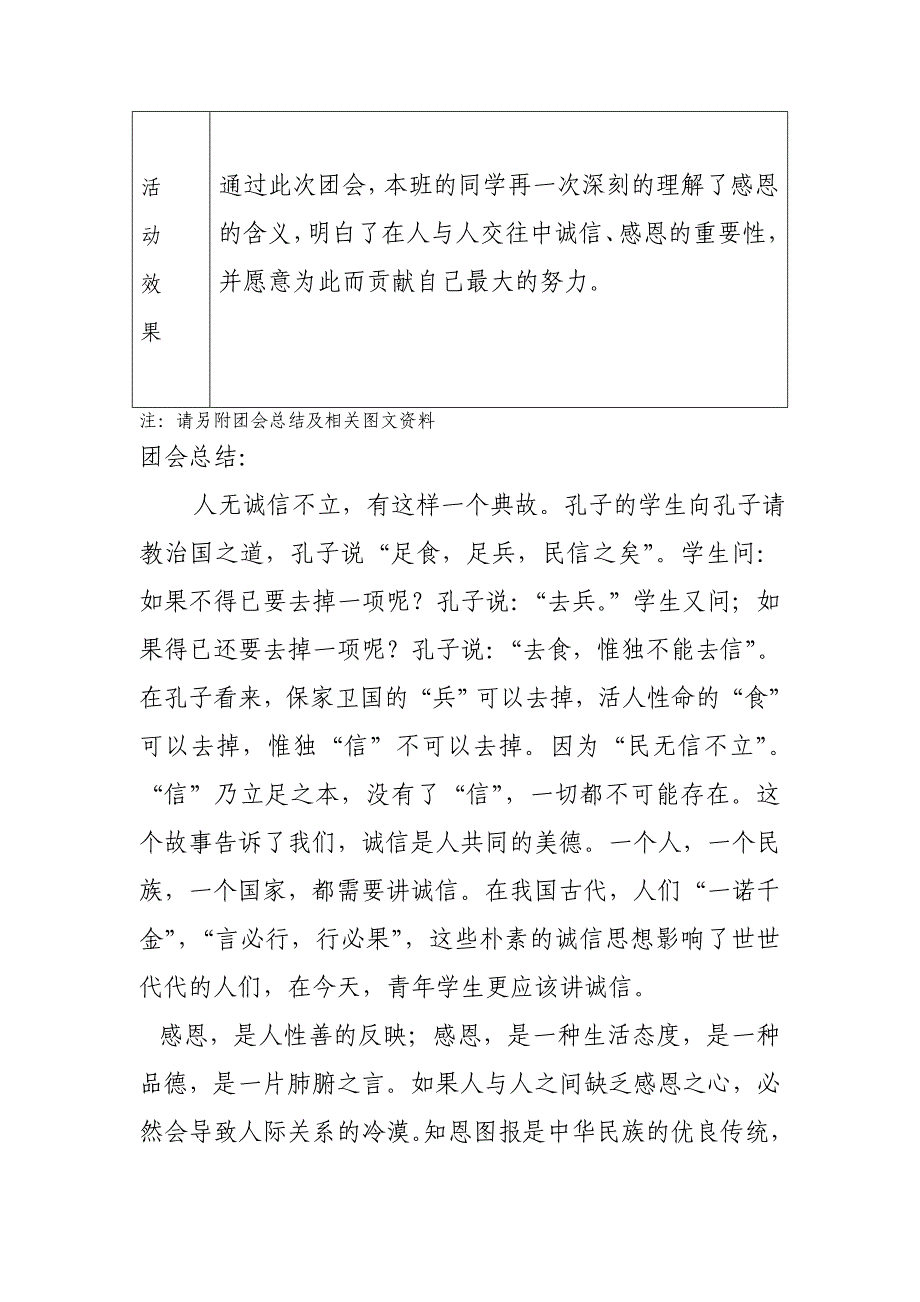 活
动
效
果
通过此次团会，本班的同学再一次深刻的理解了感恩
的含义，明白了在人与人交往中诚信、感恩的重要性，
并愿意为此而贡献自己最大的努力。
注：请另附团会总结及相关图文资料
团会总结：
人无诚信不立，有这样一个典故。孔子的学生向孔子请
教治国之道，孔子说“足食，足兵，民信之矣”。学生问：
如果不得已要去掉一项呢？孔子说：“去兵。”学生又问；如
果得已还要去掉一项呢？孔子说：“去食，惟独不能去信”。
在孔子看来，保家卫国的“兵”可以去掉，活人性命的“食”
可以去掉，惟独“信”不可以去掉。因为“民无信不立”。
“信”乃立足之本，没有了“信”，一切都不可能存在。这
个故事告诉了我们，诚信是人共同的美德。一个人，一个民
族，一个国家，都需要讲诚信。在我国古代，人们“一诺千
金”，“言必行，行必果”，这些朴素的诚信思想影响了世世
代代的人们，在今天，青年学生更应该讲诚信。
感恩，是人性善的反映；感恩，是一种生活态度，是一种
品德，是一片肺腑之言。如果人与人之间缺乏感恩之心，必
然会导致人际关系的冷漠。知恩图报是中华民族的优良传统，